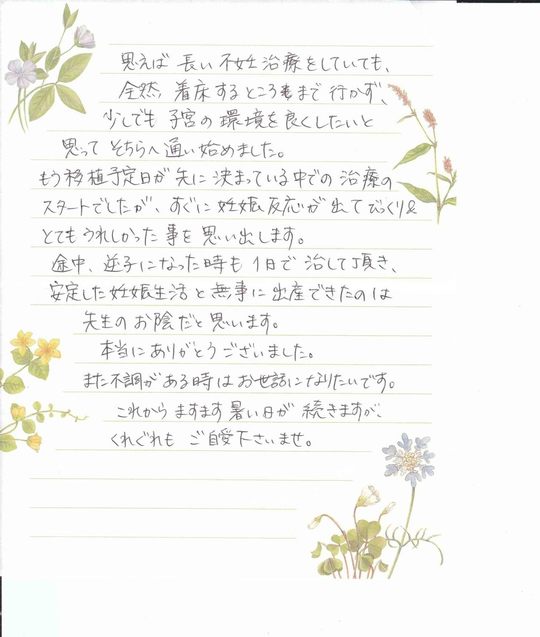 思えば 長い 不妊治療をしていても、
全然、着床するところまで 行かず、
少しでも 子宮の 環境を 良くしたいと
思って そちらへ 通い始めました。
もう移植予定日が 先に 決まっている中での 治療の
スタートでしたが、すぐに 妊娠反応が 出て びっくり&
とても うれしかった 事を 思い出します。
途中、逆子になった時も 1日で 治して頂き、
安定した 妊娠生活と 無事に 出産できたのは
先生の お陰だと思います。
本当にありがとうございました。
また不調がある時は お世話になりたいです。
これから ますます 暑い日が 続きますが、
くれぐれも ご自愛下さいませ。